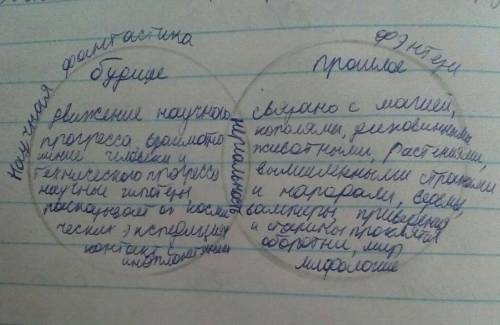 Научная фантастика
будуще
движение научного
прогресса, взаимоотно
шение человека и
технического прогресса
научные гипотезы
рассказывает о косми
ческих экспедициях
контакт с
инопланетянами
нереальность
Фэнтези
прошлое
связано с магией,
королями, диковинными
животными, растениями,
вымышленными странами
и народами, ведьмы,
вампиры, приведения
и старины проклятия
оборотни, мир
мифологии